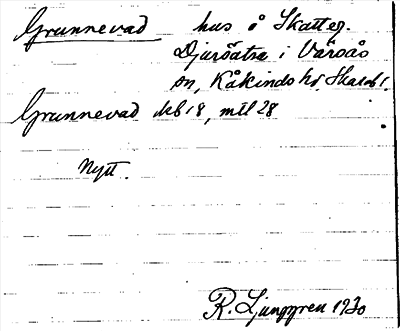 Grunnevad hus å Skatteg.
Djursätra i Värsås
sn, Kåkinds hd, Skarab l.
Grunnevad deb 18, mtl 28
Nytt.
R. Ljunggren 1930